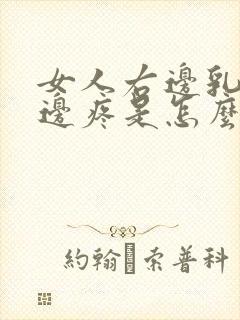 女人右邊乳
邊疼是怎麼
約翰 索普科